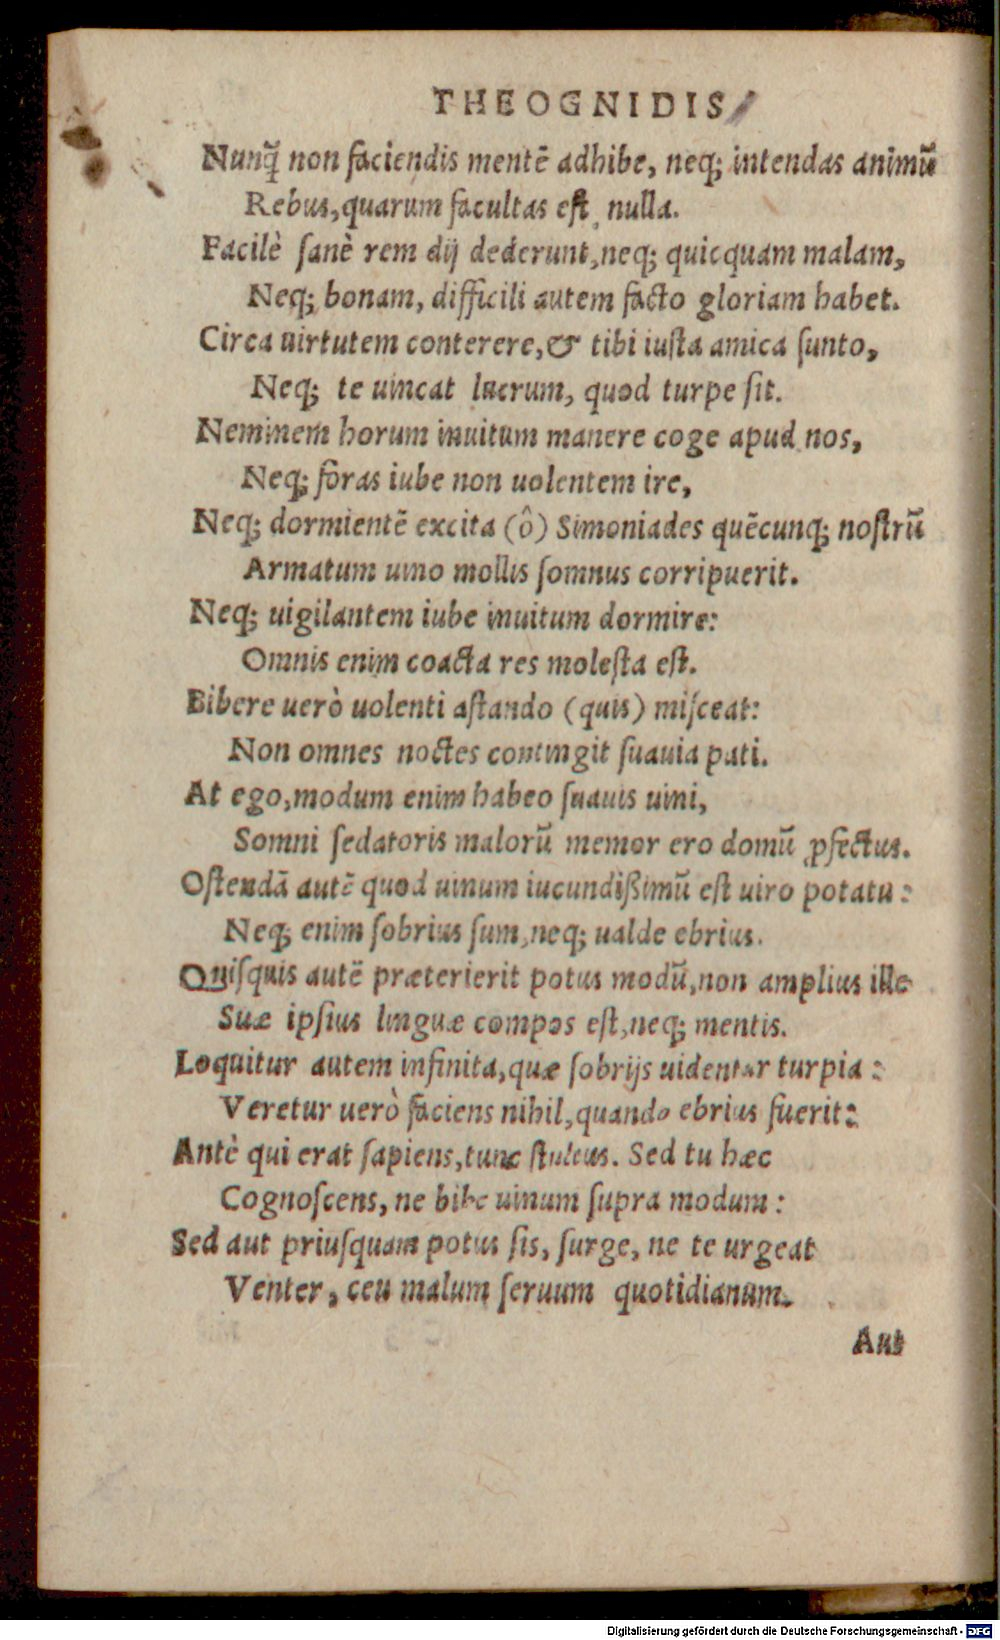 THEOGNIDIS
Nunq̃ non faciendis mentē adhibe, neq; intendas animū
Rebus, quarum facultas est nulla.
Facilè ſanè rem dij dederunt, neq; quicquam malam,
Neq; bonam, difficili autem facto gloriam habet.
Circa uirtutem conterere, & tibi iuſta amica ſunto,
Neq; te uincat lucrum, quod turpe ſit.
Neminem horum inuitum manere coge apud nos,
Neq; foras iube non uolentem ire,
Neq; dormientē excita (ô) Simoniades quēcunq; noſtrū
Armatum uino mollis ſomnus corripuerit.
Neq; uigilantem iube inuitum dormire:
Omnis enim coacta res moleſta eſt.
Bibere uerò uolenti aſtando (quis) miſceat:
Non omnes noctes contingit ſuauia pati.
At ego, modum enim habeo ſuauis uini,
Somni ſedatoris malorū memor ero domū ꝓfectus.
Oſtendā autē quod uinum iucundißimū eſt uiro potatu:
Neq; enim ſobrius ſum, neq; ualde ebrius.
Quiſquis autē præterierit potus modū, non amplius ille
Suæ ipſius linguæ compos eſt, neq; mentis.
Loquitur autem infinita, quæ ſobrijs uidentur turpia:
Veretur uerò faciens nihil, quando ebrius fuerit:
Antè qui erat ſapiens, tunc ſtultus. Sed tu hæc
Cognoſcens, ne bibe uinum ſupra modum:
Sed aut priuſquam potus ſis, ſurge, ne te urgeat
Venter, ceu malum ſeruum quotidianum.
Aut
Digitalisierung gefördert durch die Deutsche Forschungsgemeinschaft - DFG